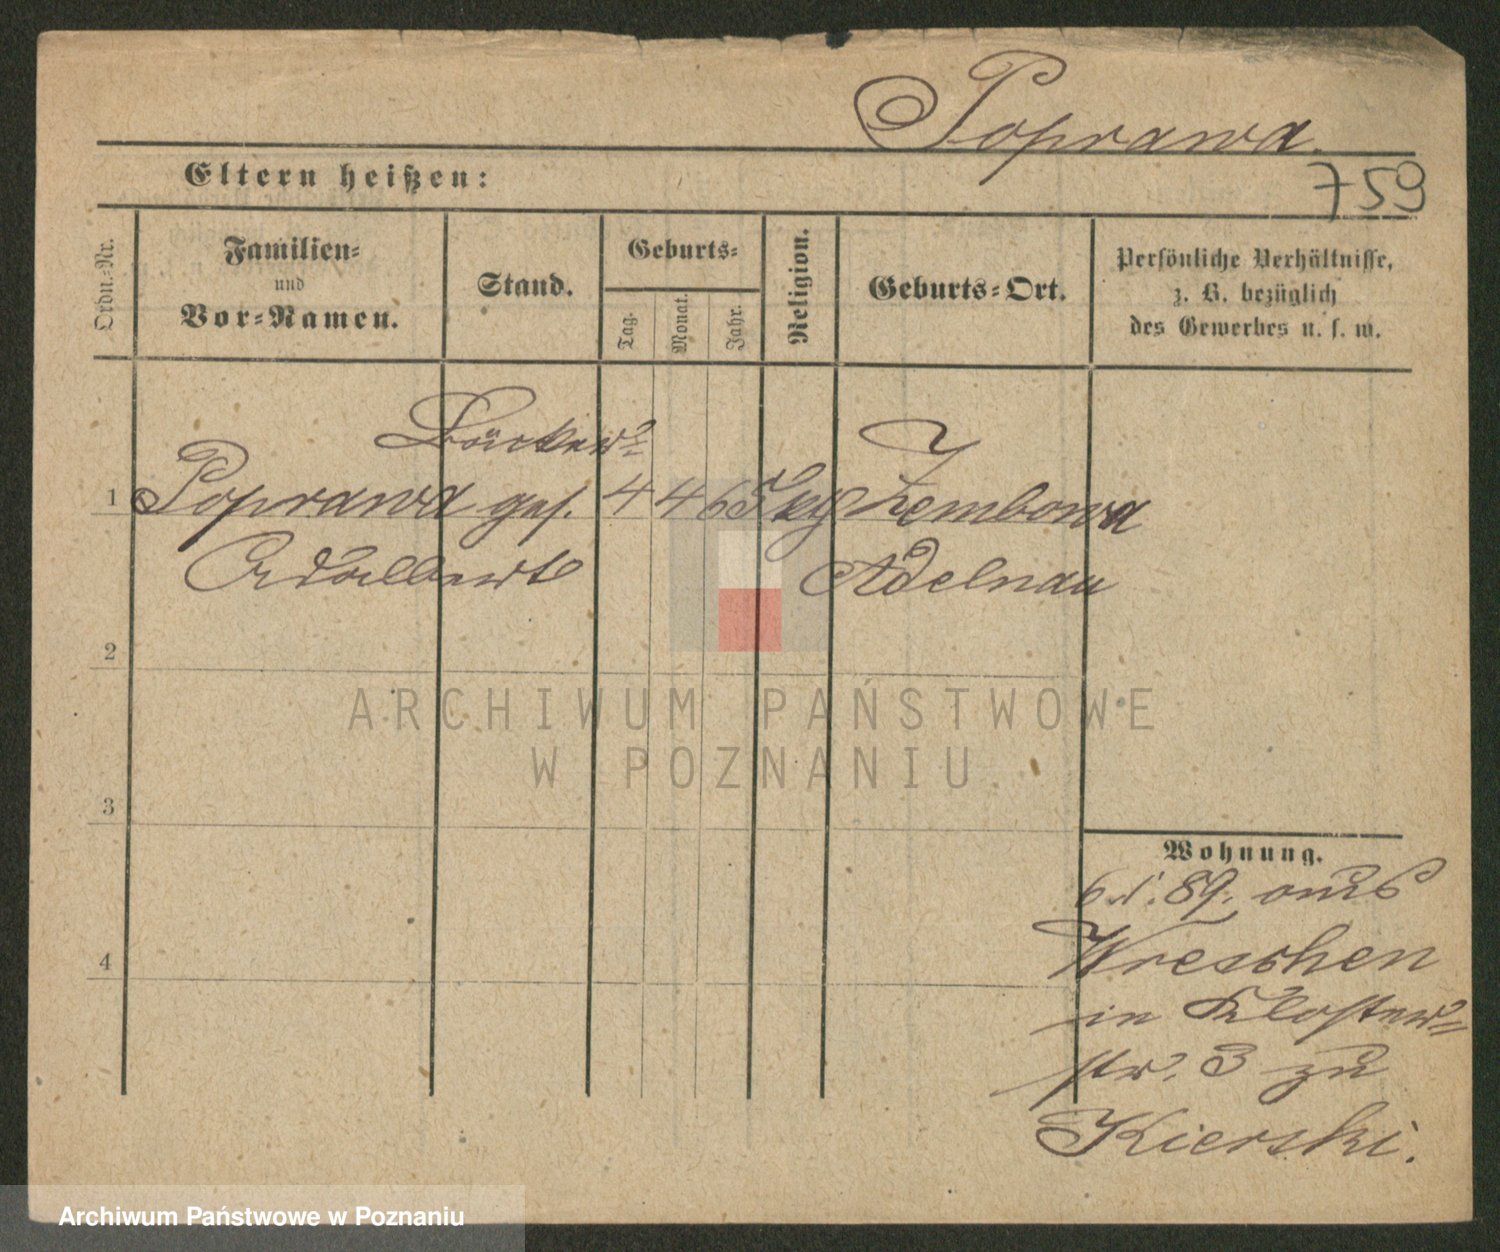 Poprawa.
759
Eltern heißen:
Ordn.-Nr.
Familien-
und
Vor-Namen.
Stand.
Geburts-
Tag.
Monat.
Jahr.
Religion.
Geburts-Ort.
Persönliche Verhältnisse,
z. B. bezüglich
des Gewerbes u. s. w.
Bäcker-
1 Poprawa ges. 4 4 65 kg Zembowa
Adalbert Adelnau
2
3
4
Wohnung.
6./1. 89. aus
Wreschen
in Kloster-
str. 3 zu
Kierski.
ARCHIWUM PAŃSTWOWE
W POZNANIU
Archiwum Państwowe w Poznaniu